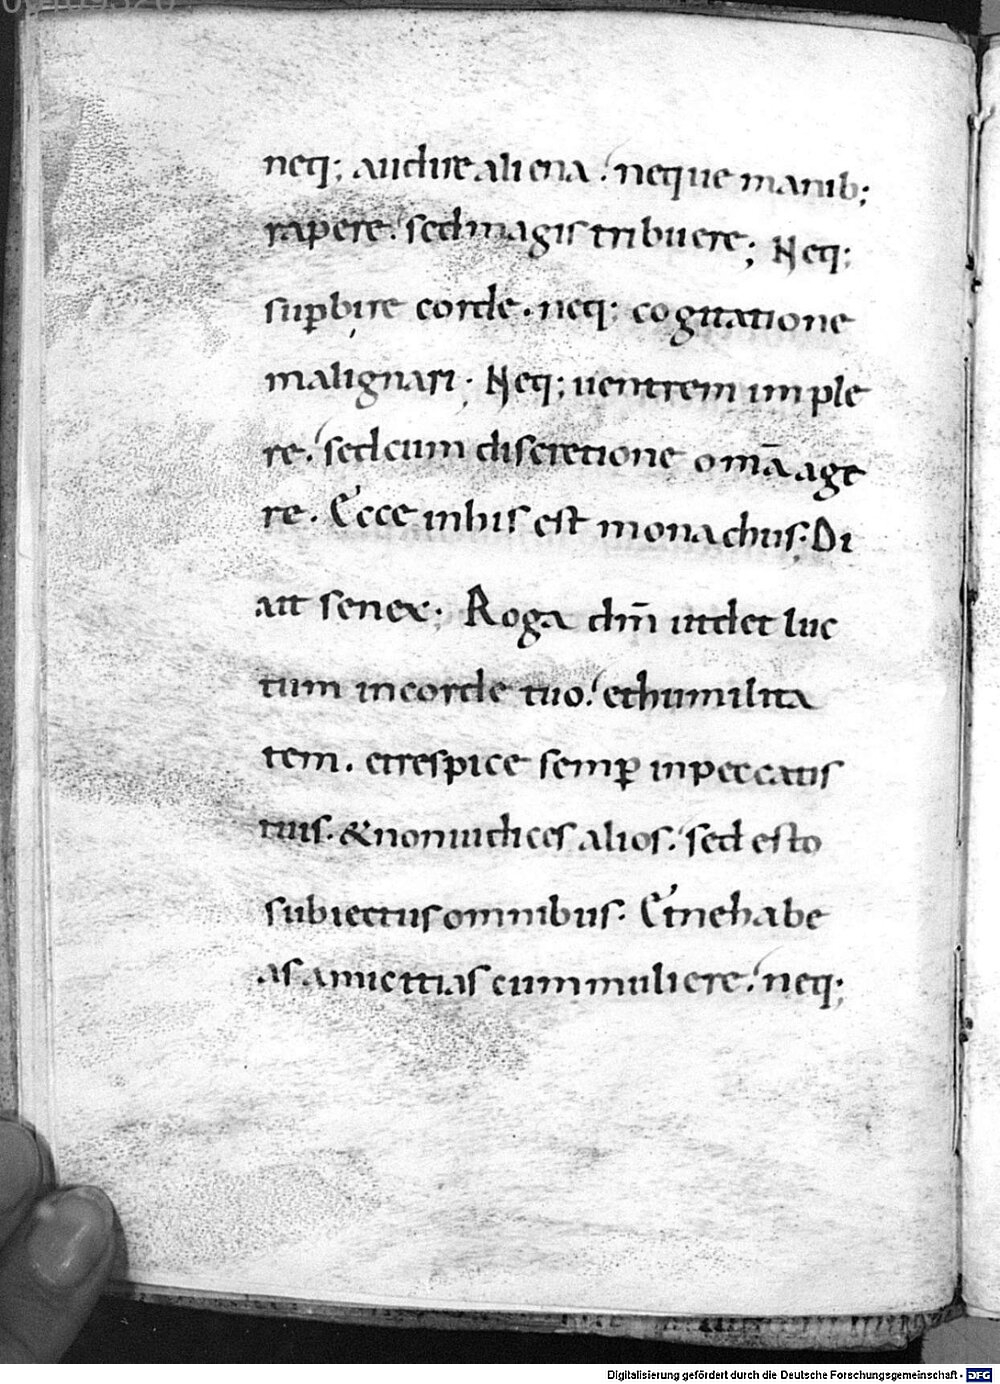 neq; audire aliena. neque manib;
rapere. sed magis tribuere; Neq;
sup̱bire corde. neq; cogitatione
malignari. Neq; uentrem imple
re. sed cum discretione om̄a age
re. Ecce in his est monachus. Di
cit senex; Roga dm̄ ut det luc
tum in corde tuo. et humilita
tem. et respice semp̱ in peccatis
tuis. & non iudices alios. sed esto
subiectus omnibus. Et ne habe
as amicitias cum muliere. neq;
Digitalisierung gefördert durch die Deutsche Forschungsgemeinschaft - DFG